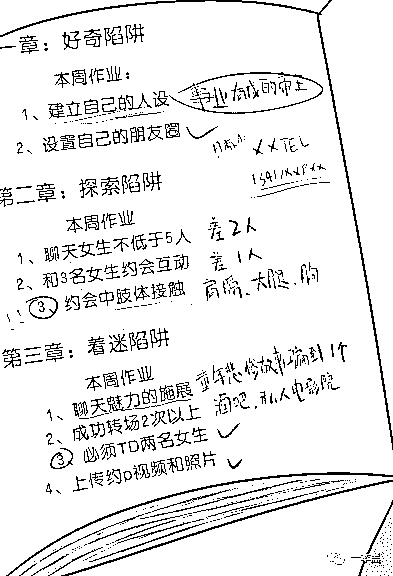 一章：好奇陷阱
本周作业：
1、建立自己的人设 事业有成的帝王
2、设置自己的朋友圈
XXTEL
1391/XXPXX
第二章：探索陷阱
本周作业
1、聊天女生不低于5人 差2人
2、和3名女生约会互动 差1人
!! ③、约会中肢体接触 肩膀、大腿、胸
第三章：着迷陷阱
本周作业
1、聊天魅力的施展 童年悲惨故事骗到1个
2、成功转场2次以上 酒吧、私人电影院
③、必须TD两名女生
4、上传约p视频和照片